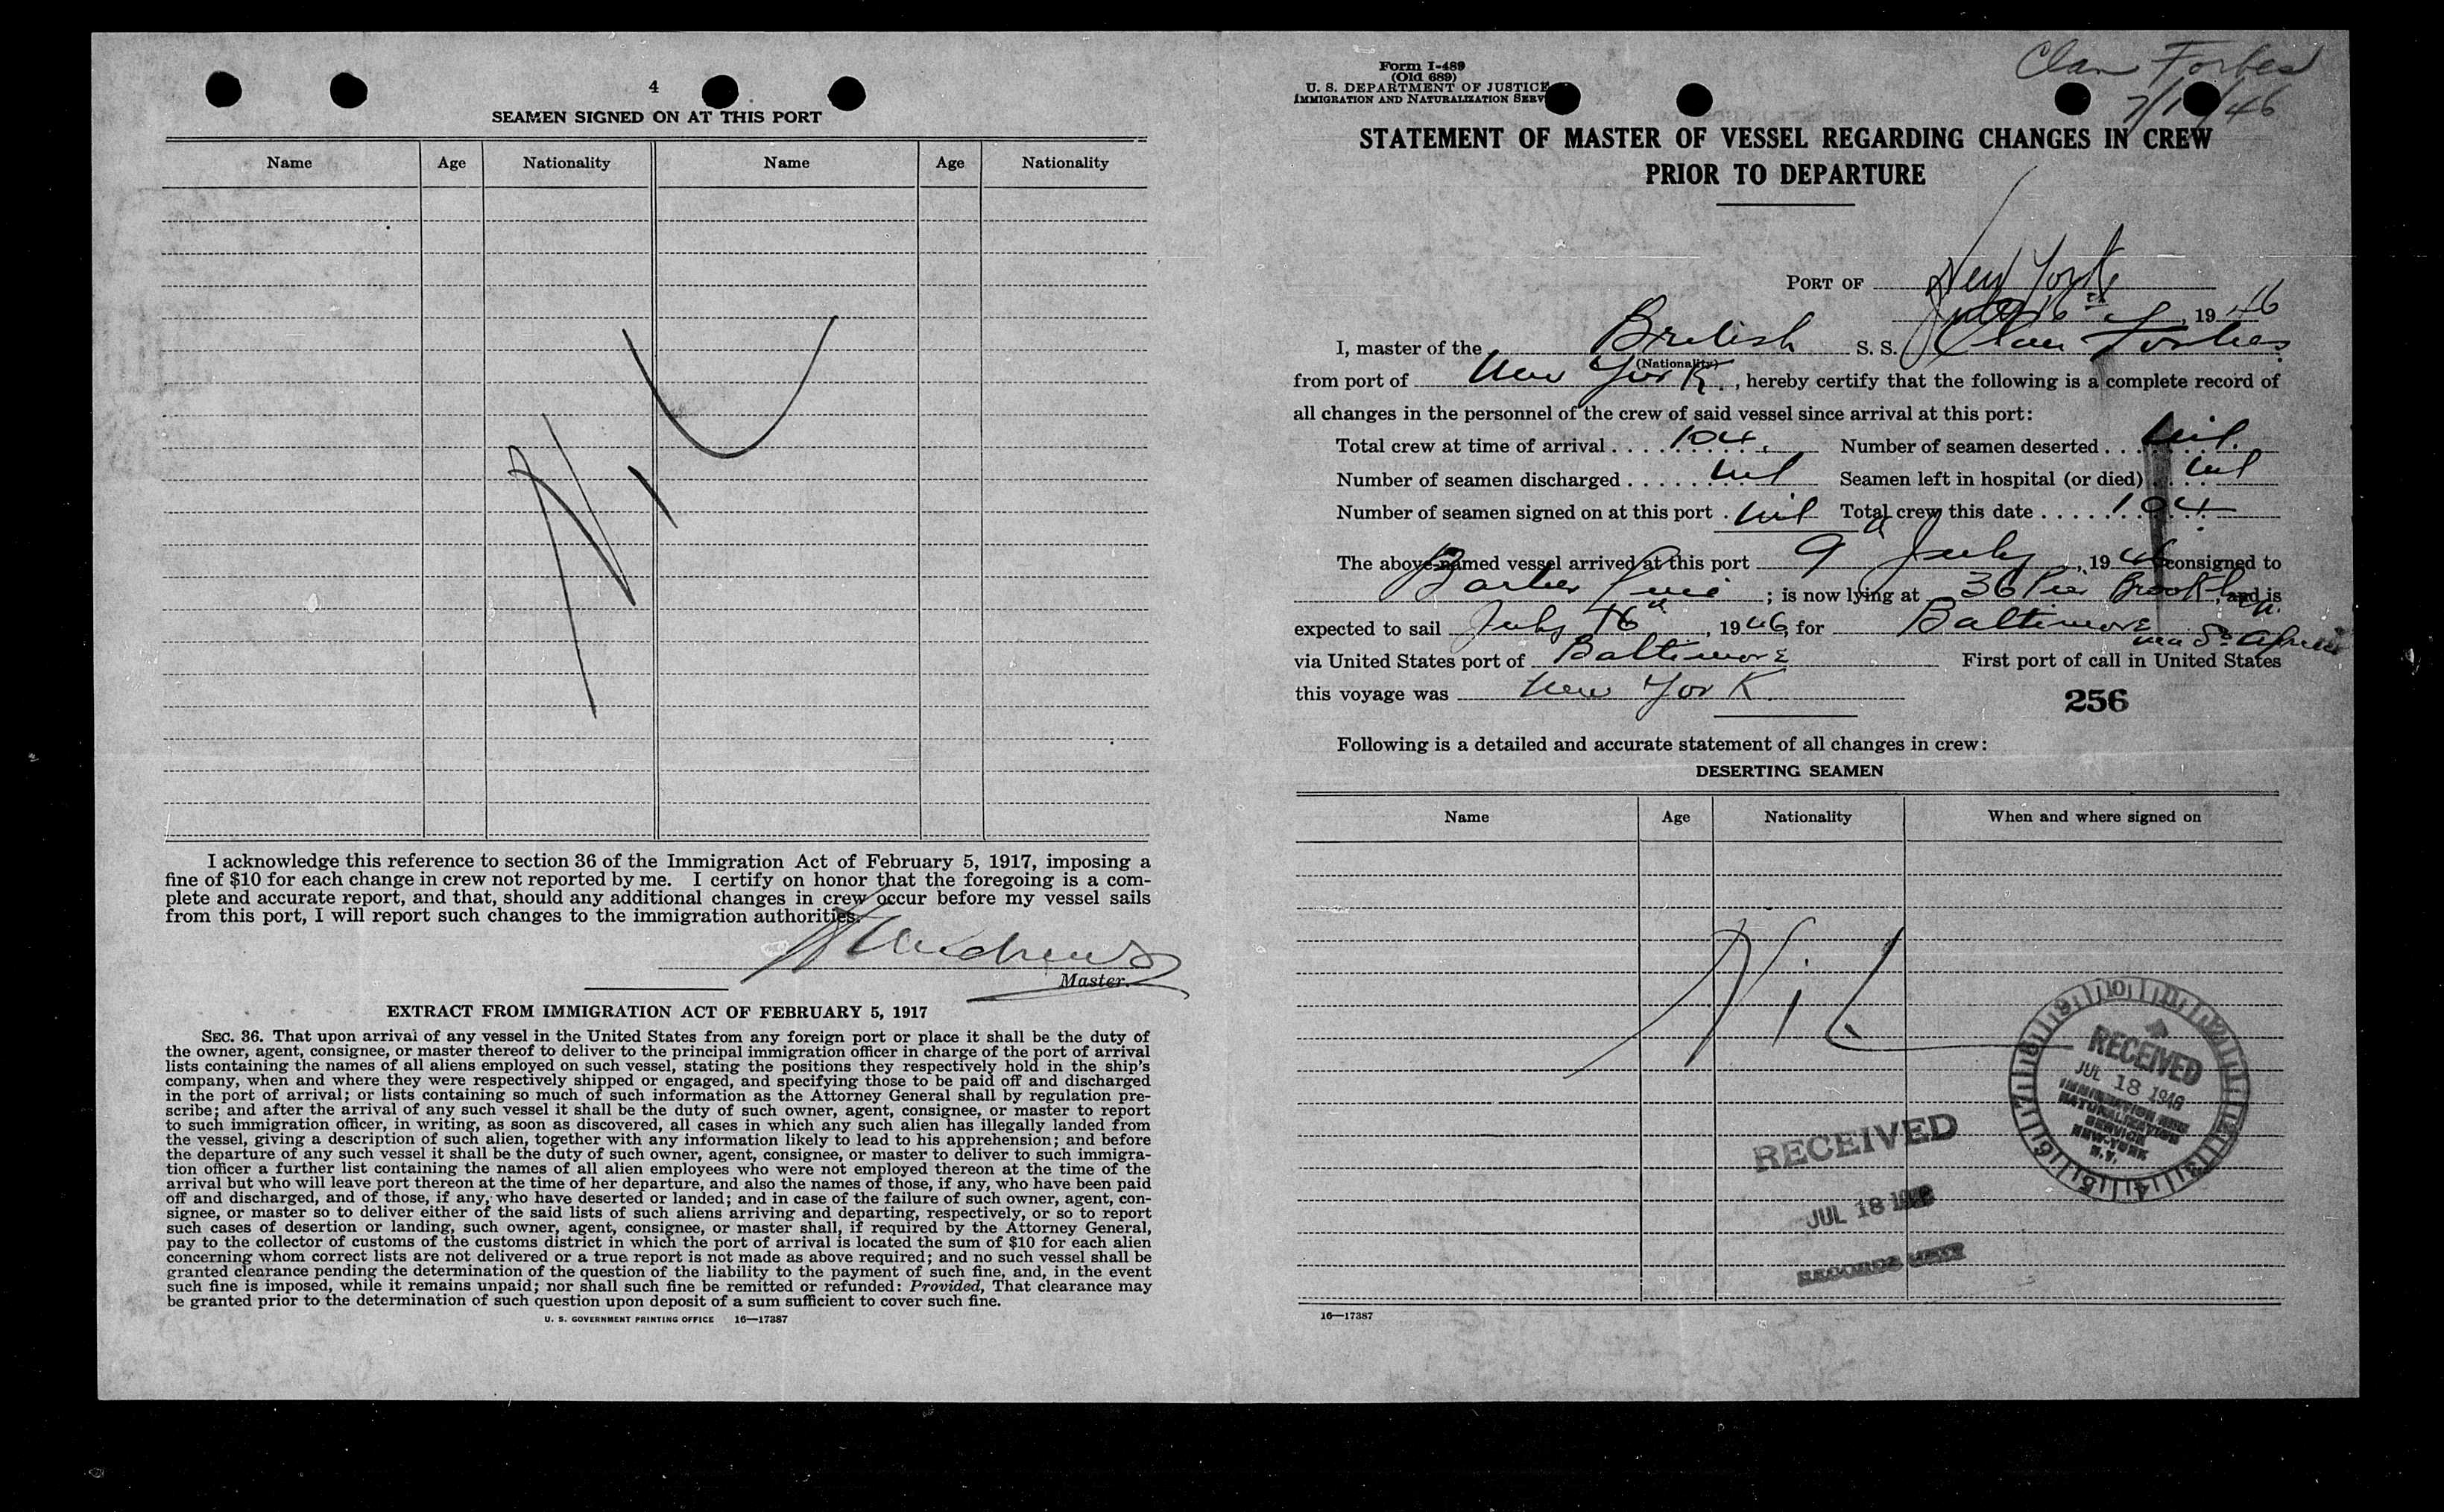 4
SEAMEN SIGNED ON AT THIS PORT
Name Age Nationality Name Age Nationality
Nil
I acknowledge this reference to section 36 of the Immigration Act of February 5, 1917, imposing a
fine of $10 for each change in crew not reported by me. I certify on honor that the foregoing is a com-
plete and accurate report, and that, should any additional changes in crew occur before my vessel sails
from this port, I will report such changes to the immigration authorities.
Andrews
Master.
EXTRACT FROM IMMIGRATION ACT OF FEBRUARY 5, 1917
SEC. 36. That upon arrival of any vessel in the United States from any foreign port or place it shall be the duty of
the owner, agent, consignee, or master thereof to deliver to the principal immigration officer in charge of the port of arrival
lists containing the names of all aliens employed on such vessel, stating the positions they respectively hold in the ship's
company, when and where they were respectively shipped or engaged, and specifying those to be paid off and discharged
in the port of arrival; or lists containing so much of such information as the Attorney General shall by regulation pre-
scribe; and after the arrival of any such vessel it shall be the duty of such owner, agent, consignee, or master to report
to such immigration officer, in writing, as soon as discovered, all cases in which any such alien has illegally landed from
the vessel, giving a description of such alien, together with any information likely to lead to his apprehension; and before
the departure of any such vessel it shall be the duty of such owner, agent, consignee, or master to deliver to such immigra-
tion officer a further list containing the names of all alien employees who were not employed thereon at the time of the
arrival but who will leave port thereon at the time of her departure, and also the names of those, if any, who have been paid
off and discharged, and of those, if any, who have deserted or landed; and in case of the failure of such owner, agent, con-
signee, or master so to deliver either of the said lists of such aliens arriving and departing, respectively, or so to report
such cases of desertion or landing, such owner, agent, consignee, or master shall, if required by the Attorney General,
pay to the collector of customs of the customs district in which the port of arrival is located the sum of $10 for each alien
concerning whom correct lists are not delivered or a true report is not made as above required; and no such vessel shall be
granted clearance pending the determination of the question of the liability to the payment of such fine, and, in the event
such fine is imposed, while it remains unpaid; nor shall such fine be remitted or refunded: Provided, That clearance may
be granted prior to the determination of such question upon deposit of a sum sufficient to cover such fine.
U. S. GOVERNMENT PRINTING OFFICE 16—17387
Clan Forbes
Form I-489
(Old 689)
U. S. DEPARTMENT OF JUSTICE
IMMIGRATION AND NATURALIZATION SERV
STATEMENT OF MASTER OF VESSEL REGARDING CHANGES IN CREW
PRIOR TO DEPARTURE
PORT OF New York
July 16th, 1946
I, master of the British S. S. Clan Forbes
(Nationality)
from port of New York, hereby certify that the following is a complete record of
all changes in the personnel of the crew of said vessel since arrival at this port:
Total crew at time of arrival .... 104. Number of seamen deserted ... Nil.
Number of seamen discharged .... nil Seamen left in hospital (or died) nil
Number of seamen signed on at this port . nil Total crew this date ..... 104.
The above-named vessel arrived at this port 9th July, 1946 consigned to
Barber Line; is now lying at 36 Pier Brooklyn, and is
expected to sail July 16th, 1946, for Baltimore
via United States port of Baltimore First port of call in United States
this voyage was New York.
256
Following is a detailed and accurate statement of all changes in crew:
DESERTING SEAMEN
Name Age Nationality When and where signed on
Nil
RECEIVED
JUL 18 1946
IMMIGRATION AND
NATURALIZATION
SERVICE
NEW-YORK
N.Y.
RECEIVED
JUL 18 1946
RECORDS UNIT
16—17387